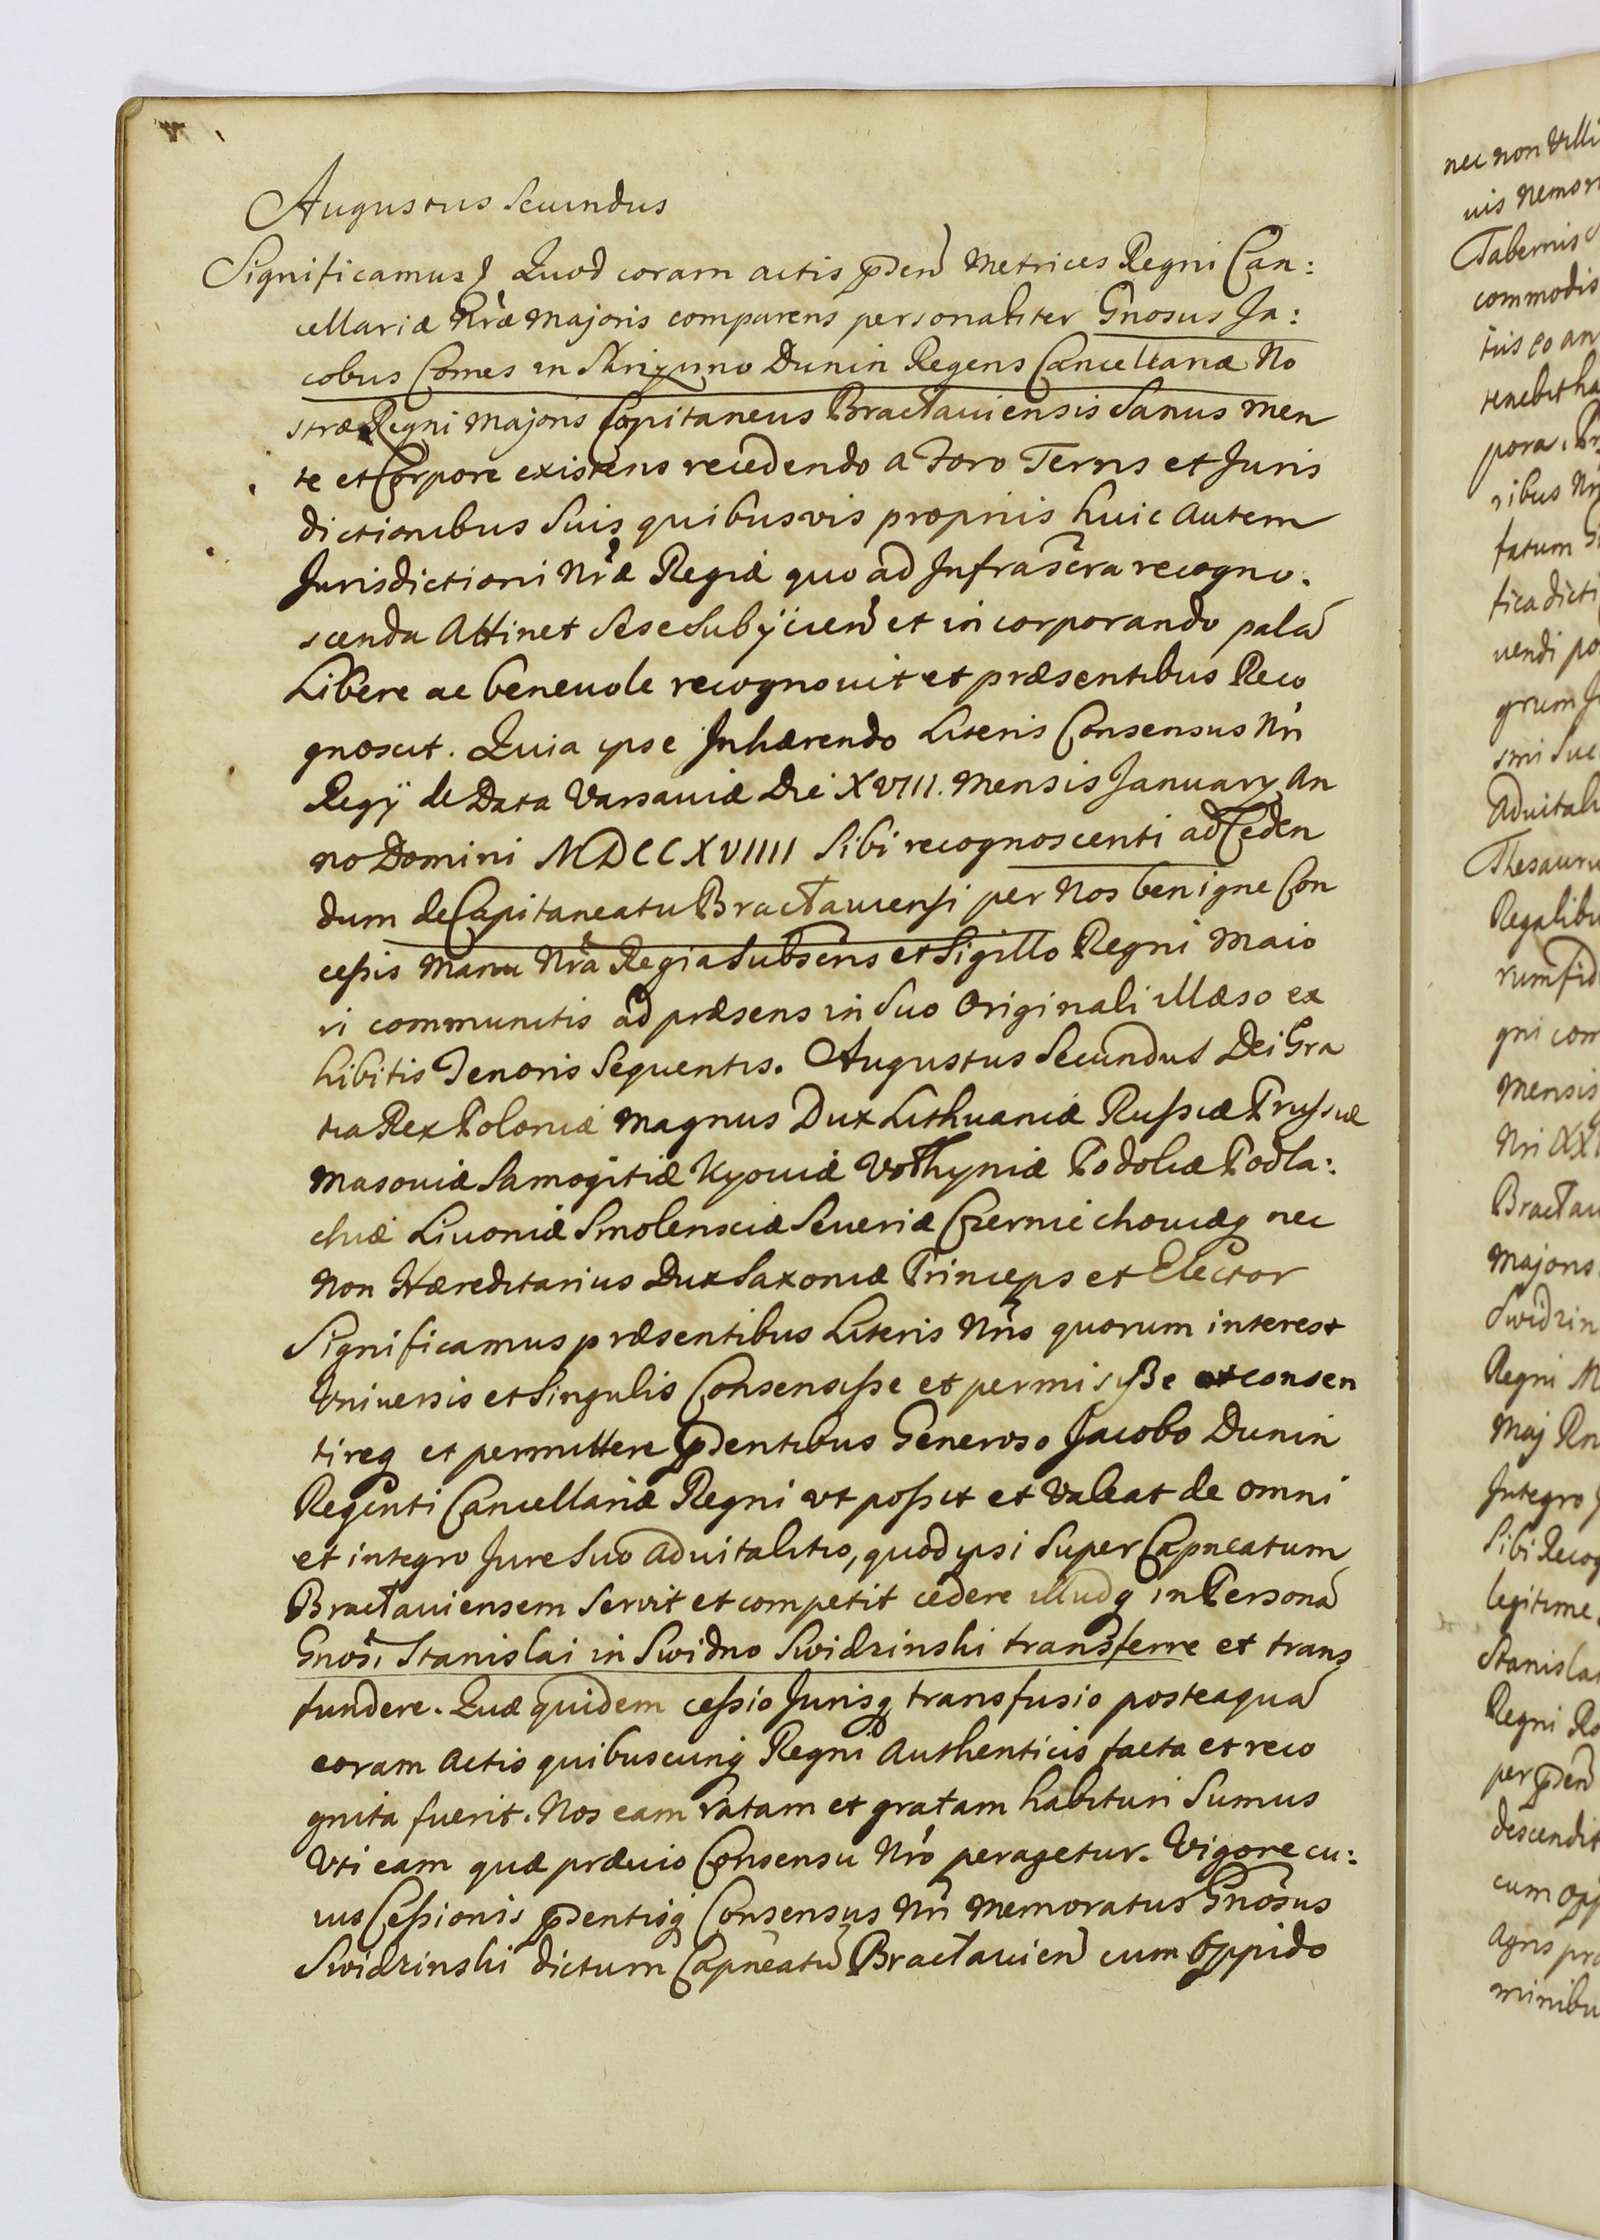 Augustus Secundus
Significamus Quod coram actis pñden Metrices Regni Can:
cellariæ Nræ Majoris comparens personaliter Gnosus Ja:
cobus Comes in Skrzynno Dunin Regens Cancellariæ No
stræ Regni Majoris Capitaneus Bractaviensis Sanus men
te et Corpore existens recedendo a Foro Terris et Juris
dictionibus Suis quibusvis propriis huic autem
Jurisdictioni Nræ Regiæ quo ad Infrascra recogno.
scenda Attinet Sese Subijcien et incorporando pala
Libere ac benevole recognovit et præsentibus Reco
gnoscit. Quia ipse Inhærendo Literis Consensus Nri
Regij de Data Varsaviæ Die XVIII. Mensis January An
no Domini MDCCXVIIII Sibi recognoscenti ad Ceden
dum de Capitaneatu Bractaviensi per Nos benigne Con
cessis Manu Nra Regia Subscris et Sigillo Regni Maio
ri communitis ad præsens in Suo Originali illæso ex
hibitis Tenoris Sequentis. Augustus Secundus Dei Gra
tia Rex Poloniæ Magnus Dux Lithuaniæ Russiæ Prussiæ
Masoviæ Samogitiæ Kyoviæ Volhyniæ Podoliæ Podla:
chiæ Livoniæ Smolensciæ Severiæ Czerniechoviæq nec
Non Hæreditarius Dux Saxoniæ Princeps et Elector
Significamus præsentibus Literis Nris quorum interest
Vniversis et Singulis Consensisse et permisisse et consen
tireq et permittere pñdentibus Generoso Jacobo Dunin
Regenti Cancellariæ Regni vt possit et Valeat de omni
et integro Jure Suo advitalitio, quod ipsi Super Capneatum
Bractaviensem Servit et competit cedere illudq in Persona
Gnosi Stanislai in Swidno Swidzinski transferre et trans
fundere. Quæ quidem cessio Jurisq transfusio posteaqua
coram Actis quibuscunq Regni Authenticis facta et reco
gnita fuerit. Nos eam ratam et gratam habituri Sumus
Vti eam quæ prævio Consensu Nro peragetur. Vigore cu:
ius Cessionis pñdentisq Consensus Nri Memoratus Gnosus
Swidzinski dictum Capneatu Bractavien cum Oppido
nec non Villi
vis Nemor
Tabernis
commodis
tenebit ha
pora. Pr
ribus Nr
fatum G
fica dicti
vendi po
grum J
smi Suc
Advitali
Thesauru
Regalibu
rum fid
gni com
Mensis
Nri XX
Bractav
Majoris
Swidzin
Regni M
Maj Rn
Integro J
Sibi Recog
legitime
Stanislai
Regni Ro
per pñden
descendit
cum opp
Agris pra
minibu